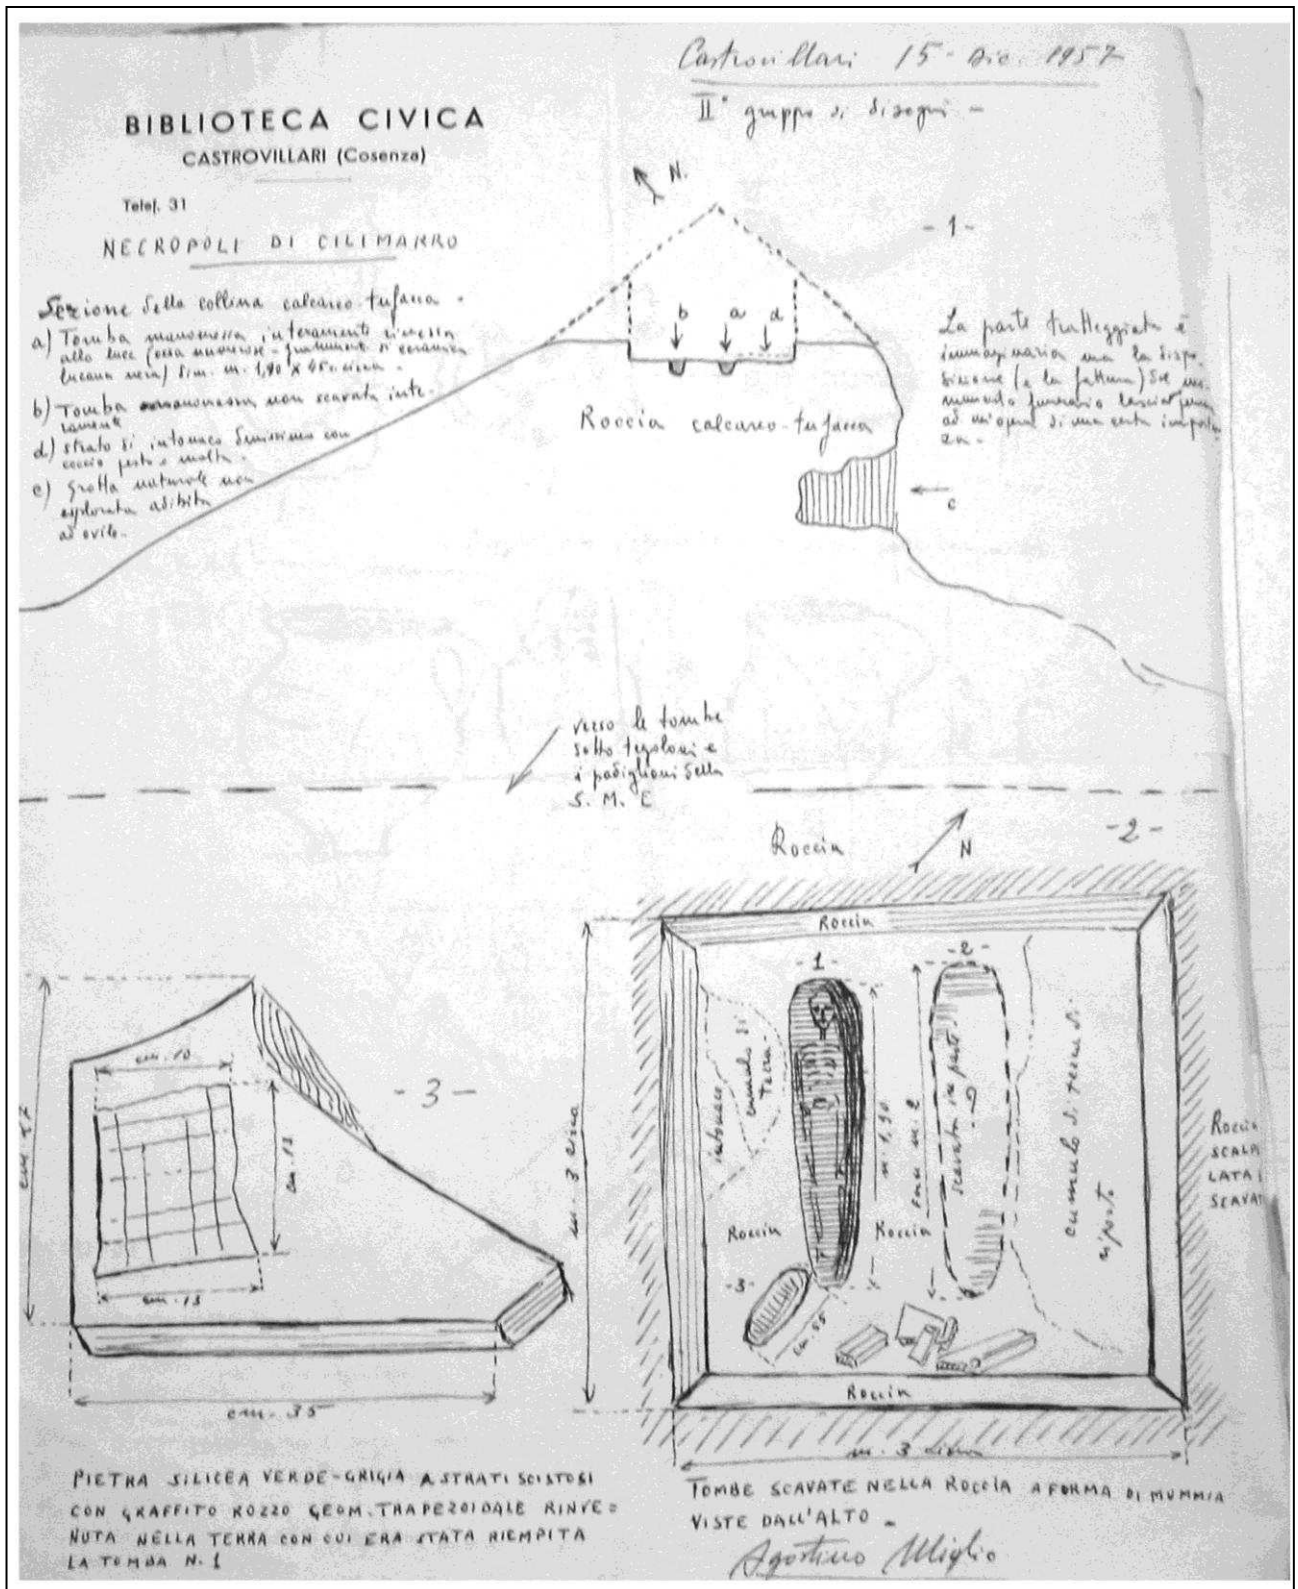 Castrovillari 15 - Dic. 1957
II° gruppo di disegni -
BIBLIOTECA CIVICA
CASTROVILLARI (Cosenza)
Telef. 31
NECROPOLI DI CILIMARRO
Sezione della collina calcareo-tufacea -
a) Tomba manomessa interamente rimessa
alla luce (ossa numerose - frammenti di ceramica
lucana nera) dim. m. 1,90 x 45 circa -
b) Tomba manomessa non scavata inte-
ramente
d) strato di intonaco durissimo con
coccio pesto e malta -
c) grotta naturale non
esplorata adibita
ad ovile -
N.
- 1 -
b a d
Roccia calcareo-tufacea
c
La parte tratteggiata è
immaginaria ma la dispo-
sizione (e la fattura) del mo-
numento funerario lascia
ad un'opera di una certa importan-
za -
verso le tombe
sotto tegoloni e
i padiglioni della
S. M. E
Roccia
N
- 2 -
Roccia
- 1 -
- 2 -
intonaco
cumulo di
terra
m. 1,90
m. 2
scavata in parte
?
cumulo di terra di
riporto
Roccia
Roccia
- 3 -
cm. 55
Roccia
m. 3 circa
m. 3 circa
Roccia
SCALPEL
LATA
SCAVAT
- 3 -
cm. 10
cm. 13
cm. 13
cm. 35
PIETRA SILICEA VERDE-GRIGIA A STRATI SCISTOSI
CON GRAFFITO ROZZO GEOM. TRAPEZOIDALE RINVE=
NUTA NELLA TERRA CON CUI ERA STATA RIEMPITA
LA TOMBA N. 1
TOMBE SCAVATE NELLA ROCCIA A FORMA DI MUMMIA
VISTE DALL'ALTO -
Agostino Miglio